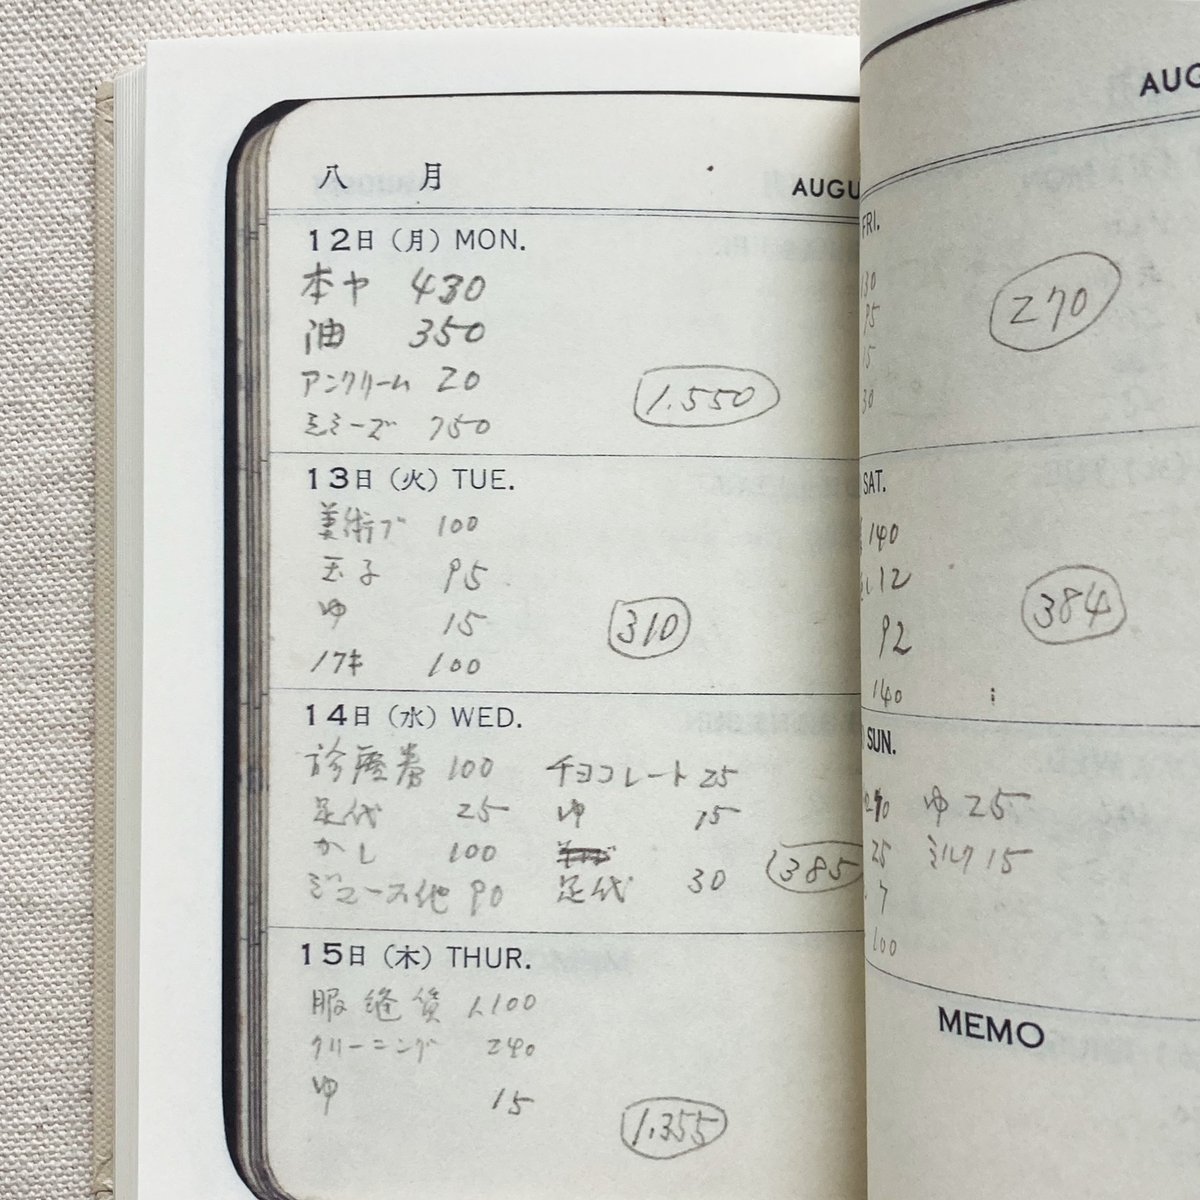 八 月
AUGU
12日（月）MON.
本ヤ 430
油 350
アンクリーム 20
ミミーズ 750
1.550
13日（火）TUE.
美術ブ 100
玉子 95
ゆ 15
ノアキ 100
310
14日（水）WED.
診療券 100 チョコレート 25
足代 25 ゆ 15
かし 100
ジュース他 90 足代 30
385
15日（木）THUR.
服縫賃 1100
クリーニング 240
ゆ 15
1.355
AUG
FRI.
130
95
15
30
270
SAT.
140
し 12
92
140
384
SUN.
ゆ 25
25 ミルク 15
7
100
MEMO